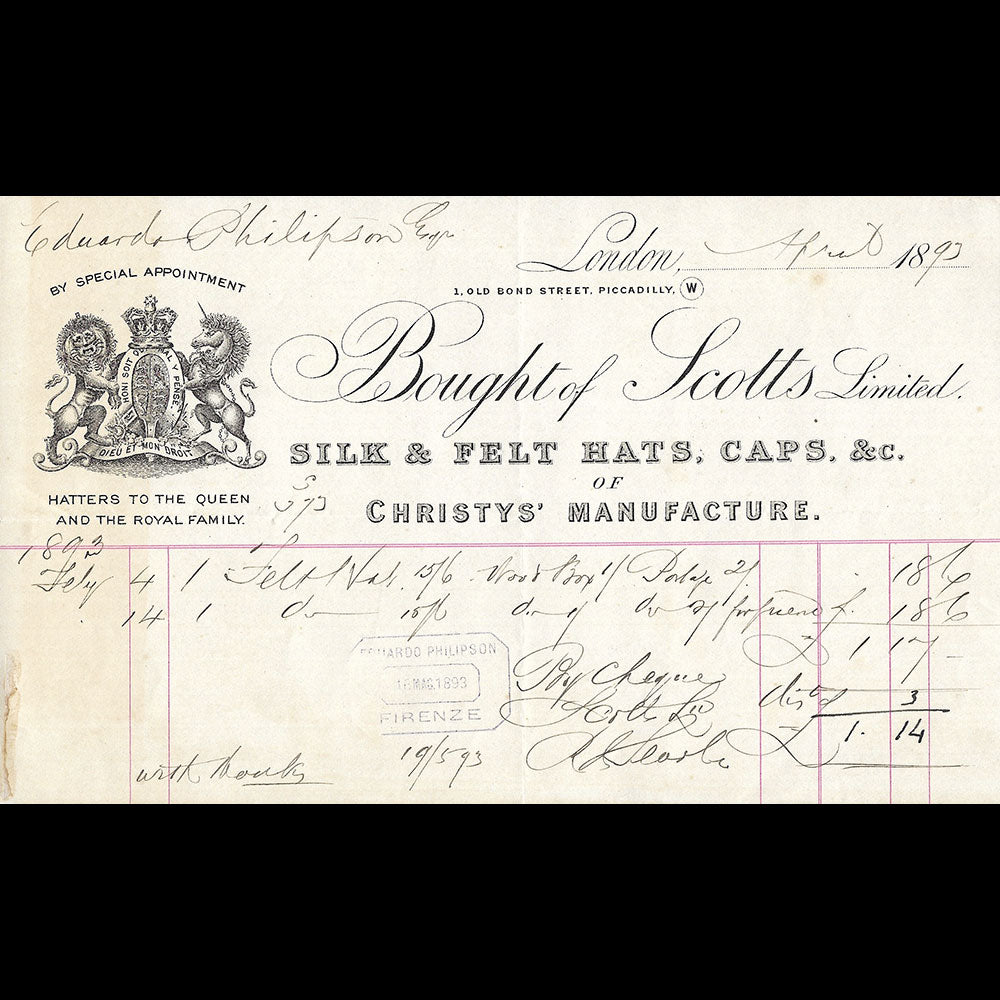 Eduardo Philipson Esqr
London, April 1893
BY SPECIAL APPOINTMENT
1, OLD BOND STREET, PICCADILLY, W
HONI SOIT QUI MAL Y PENSE
DIEU ET MON DROIT
Bought of Scotts Limited.
SILK & FELT HATS, CAPS, &c.
OF
CHRISTYS' MANUFACTURE.
HATTERS TO THE QUEEN
AND THE ROYAL FAMILY.
1893
Feby 4 1 Felt Hat 15/6 Wood Box 1/ Postage 2/ 18 6
14 1 do 15/6 do 1/ do 2/ for friend 18 6
£ 1 17 -
EDUARDO PHILIPSON
16 MAG. 1893
FIRENZE
By cheque
dist 3
Scotts Ld
£ 1. 14
19/5 93
with thanks